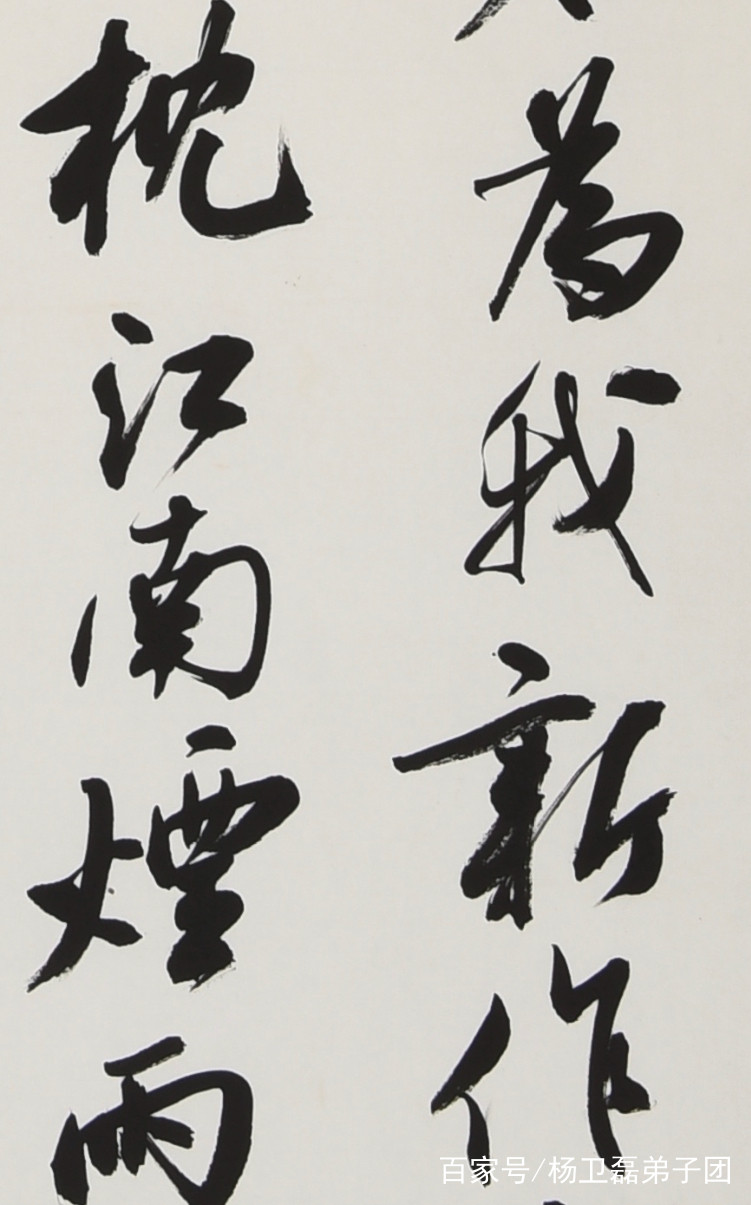 為我新作
枕江南煙雨
百家号/杨卫磊弟子团